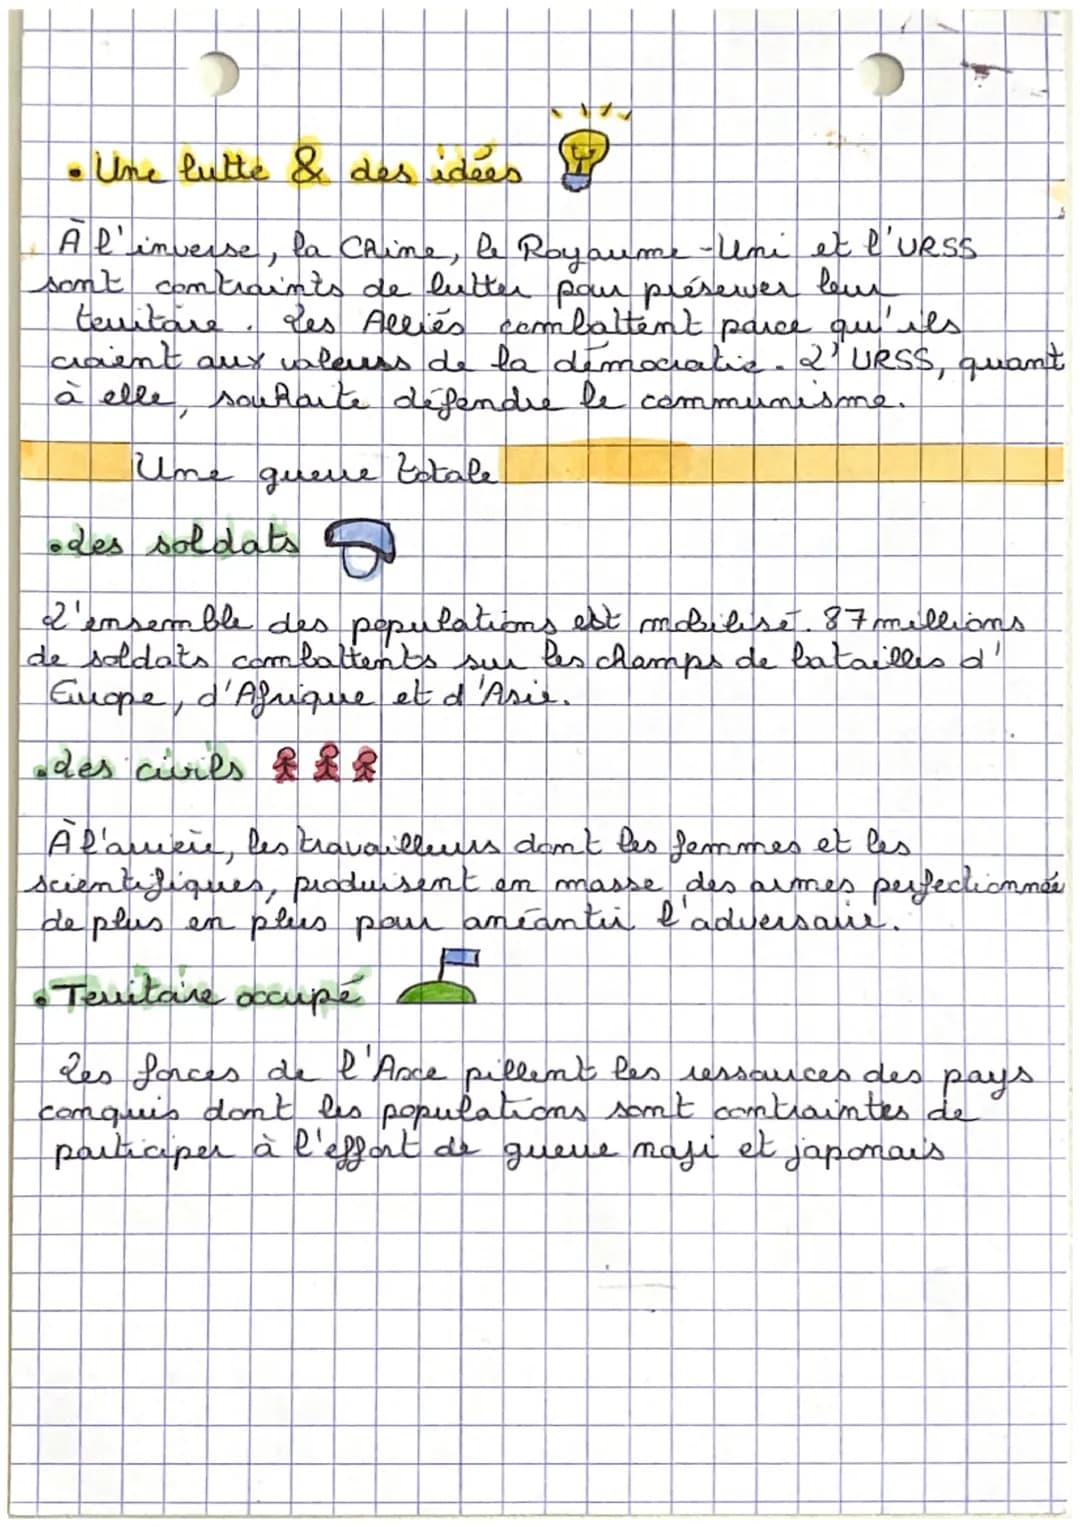 • Une lutte & des idées
À l'inverse, la Chine, le Royaume-Uni et l'URSS
sont contraints de lutter pour préserver leur
territoire. Les Alliés combattent parce qu'ils
croient aux valeurs de la démocratie. L'URSS, quant
à elle, souhaite défendre le communisme.
Une guerre totale
• Les soldats
L'ensemble des populations est mobilisé. 87 millions
de soldats combattents sur les champs de batailles d'
Europe, d'Afrique et d'Asie.
• Les civils
À l'arrière, les travailleurs dont les femmes et les
scientifiques, produisent en masse des armes perfectionnées
de plus en plus pour anéantir l'adversaire.
• Territoire occupé
Les forces de l'Axe pillent les ressources des pays
conquis dont les populations sont contraintes de
participer à l'effort de guerre nazi et japonais